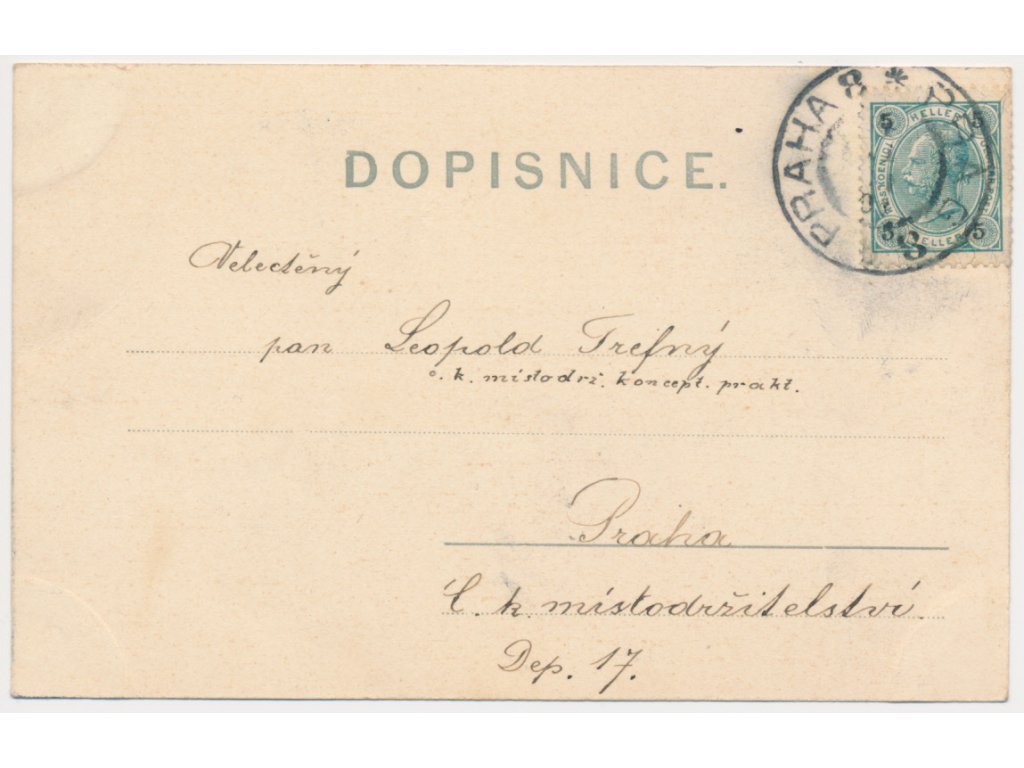 DOPISNICE.
PRAHA 8 *
5 HELLER 5
5 HELLER 5
Velectěný
pan Leopold Trefný
c. k. místodrž. koncept. prakt.
Praha
C. k. místodržitelství.
Dep. 17.